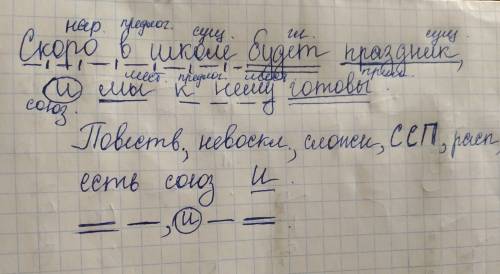 нар. предлог. сущ. гл. сущ.
Скоро в школе будет праздник,
мест. предлог. мест. прил.
и мы к нему готовы.
союз.
Повеств, невоскл, сложн, ССП, расп
есть союз и.
, и